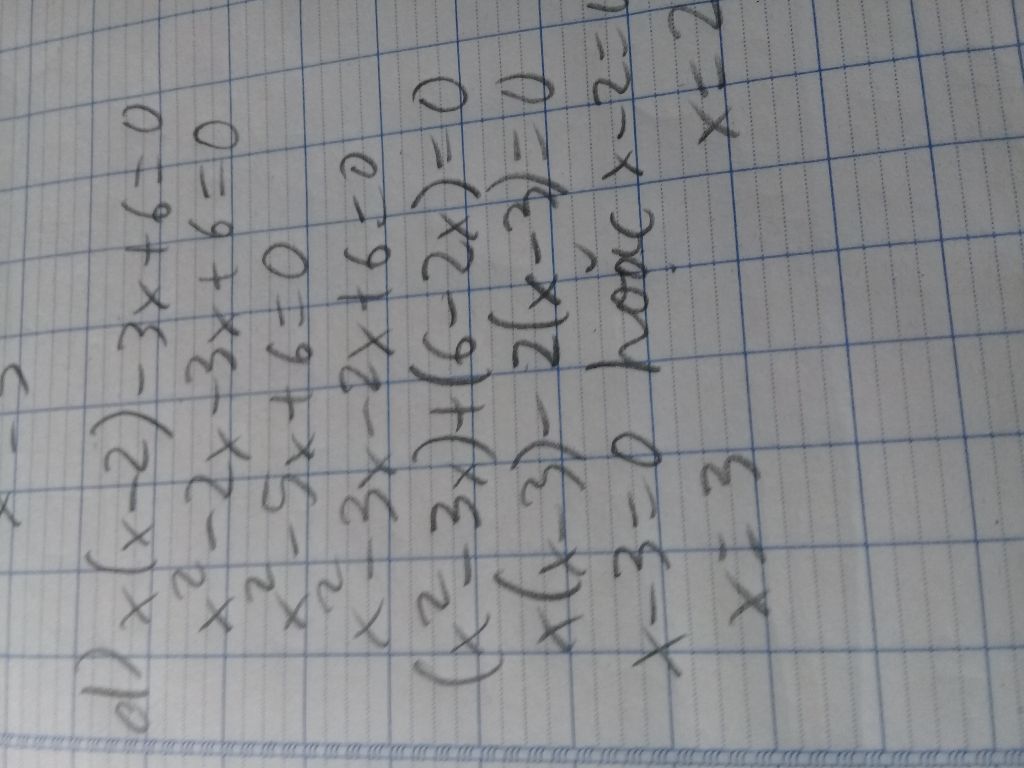 d) x(x-2)-3x+6=0
x²-2x-3x+6=0
x²-5x+6=0
x²-3x-2x+6=0
(x²-3x)+(6-2x)=0
x(x-3)-2(x-3)=0
x-3=0 hoăc x-2=
x=3 x=2